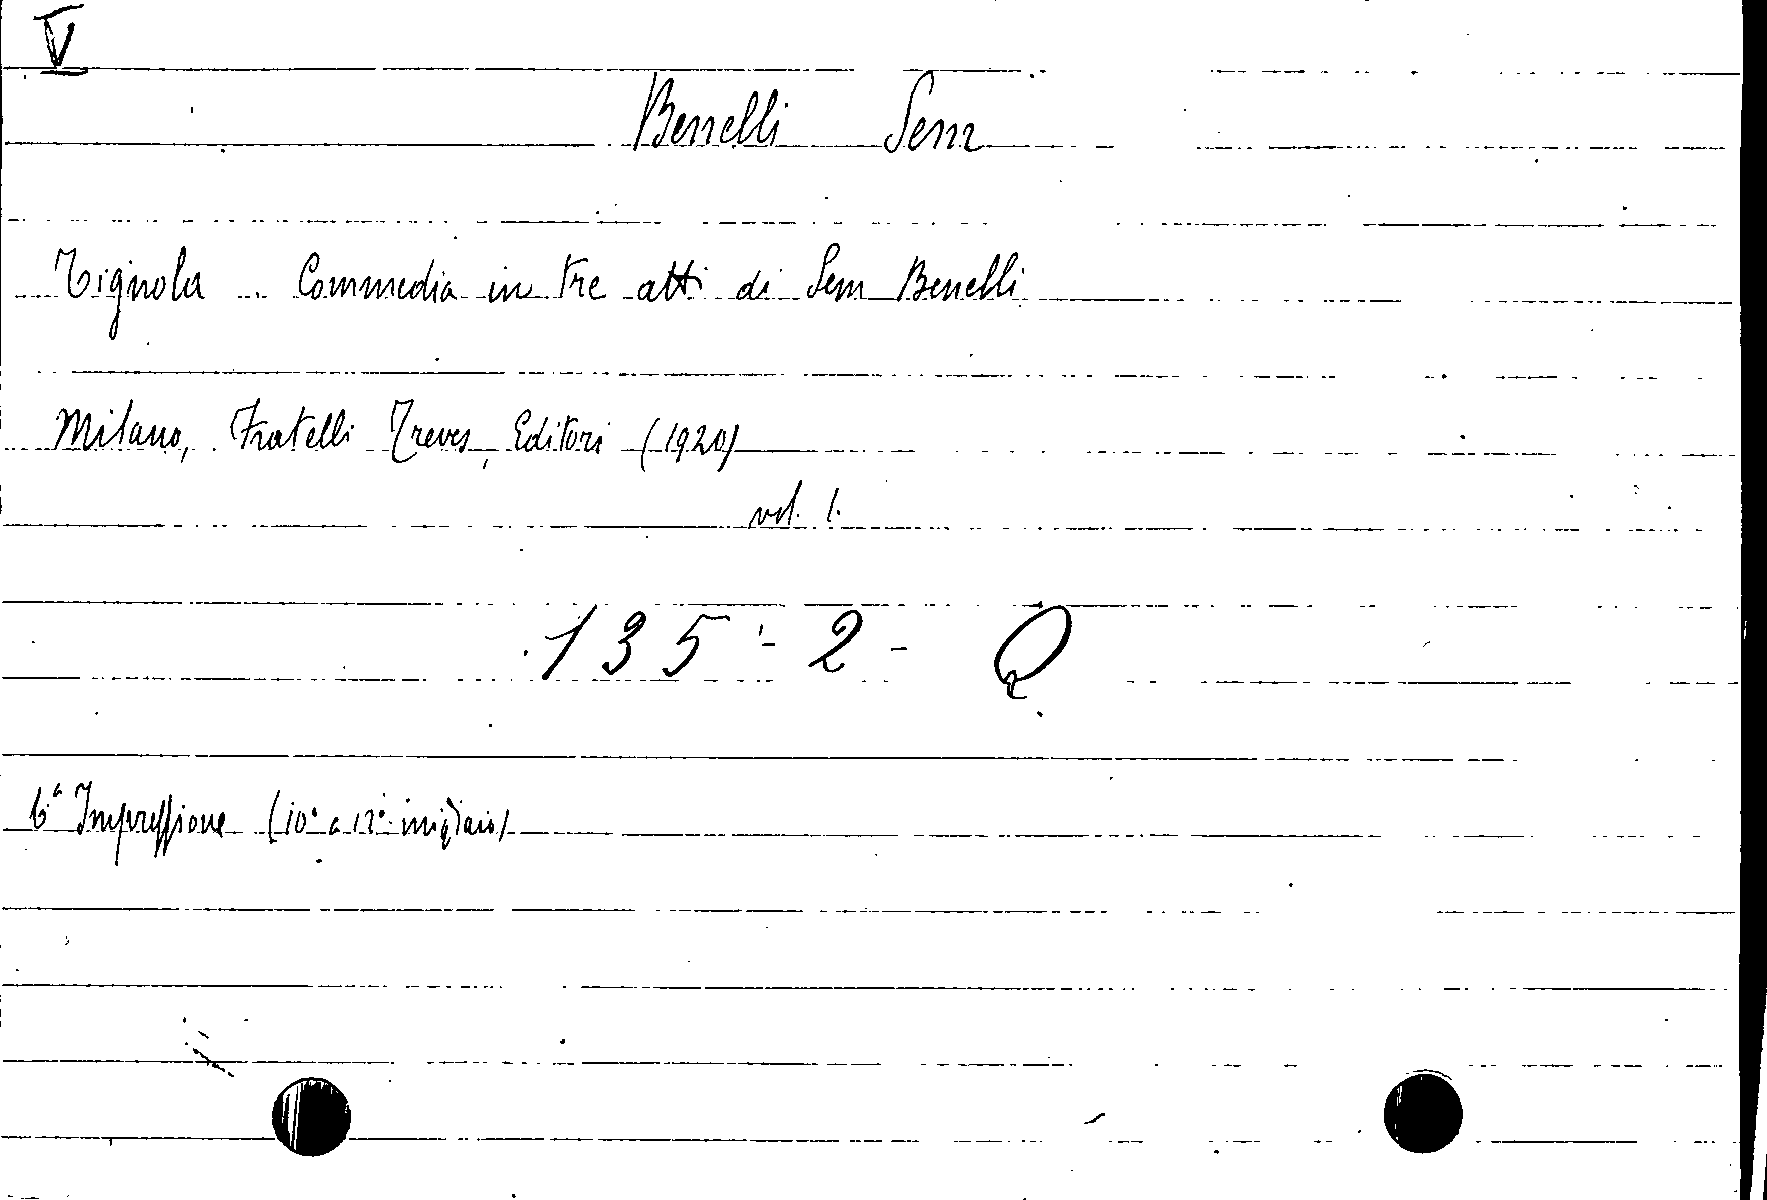 V
Benelli Sem
Tignola - Commedia in tre atti di Sem Benelli
Milano, Fratelli Treves, Editori (1920)
vol. 1.
135 - 2 - Q
6ª Impressione (10° a 12° migliaio)